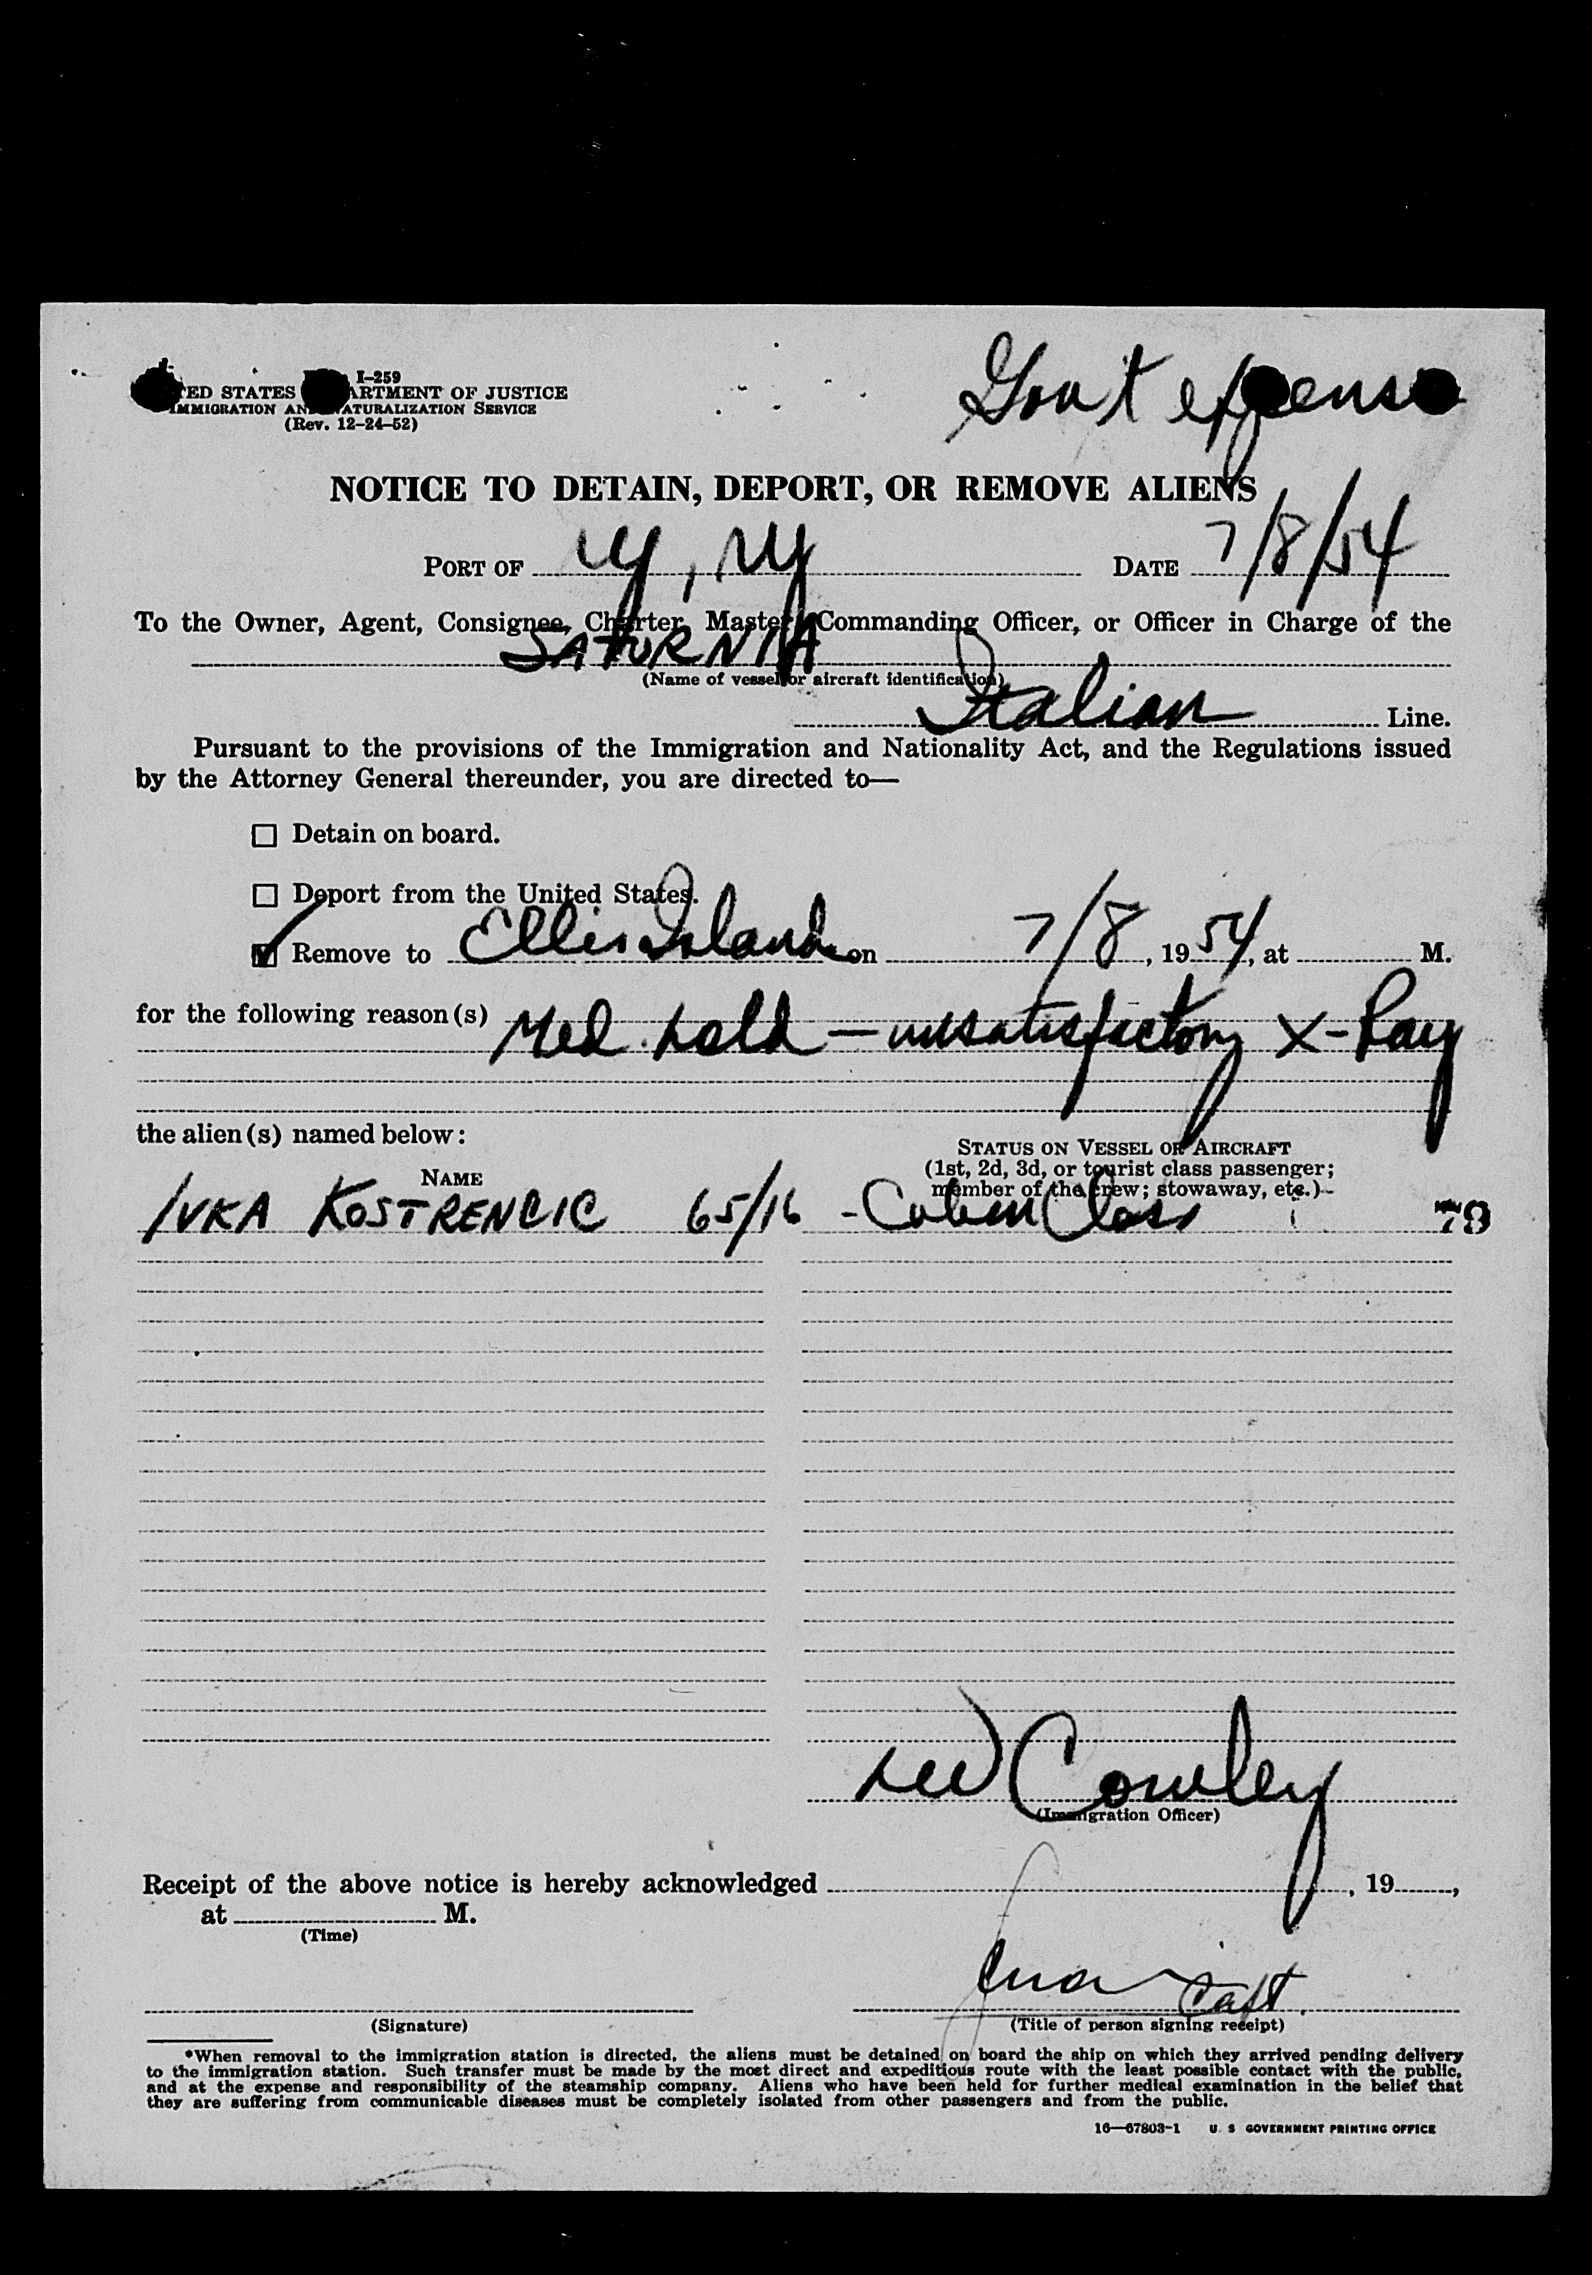 I-259
TED STATES ARTMENT OF JUSTICE
IMMIGRATION AN NATURALIZATION SERVICE
(Rev. 12-24-52)
Gov't expense
NOTICE TO DETAIN, DEPORT, OR REMOVE ALIENS
PORT OF NY, NY DATE 7/8/54
To the Owner, Agent, Consignee, Charter, Master, Commanding Officer, or Officer in Charge of the
SATURNIA
(Name of vessel or aircraft identification)
Italian Line.
Pursuant to the provisions of the Immigration and Nationality Act, and the Regulations issued
by the Attorney General thereunder, you are directed to—
☐ Detain on board.
☐ Deport from the United States.
☑ Remove to Ellis Island on 7/8, 1954, at M.
for the following reason(s) Med. hold — unsatisfactory X-Ray
the alien(s) named below:
NAME
STATUS ON VESSEL OR AIRCRAFT
(1st, 2d, 3d, or tourist class passenger;
member of the crew; stowaway, etc.)
IVKA KOSTRENCIC 65/16 - Cabin Class 78
Cowley
(Immigration Officer)
Receipt of the above notice is hereby acknowledged , 19 ,
at M.
(Time)
(Signature)
(Title of person signing receipt)
*When removal to the immigration station is directed, the aliens must be detained on board the ship on which they arrived pending delivery
to the immigration station. Such transfer must be made by the most direct and expeditious route with the least possible contact with the public,
and at the expense and responsibility of the steamship company. Aliens who have been held for further medical examination in the belief that
they are suffering from communicable diseases must be completely isolated from other passengers and from the public.
16—67803-1 U. S. GOVERNMENT PRINTING OFFICE